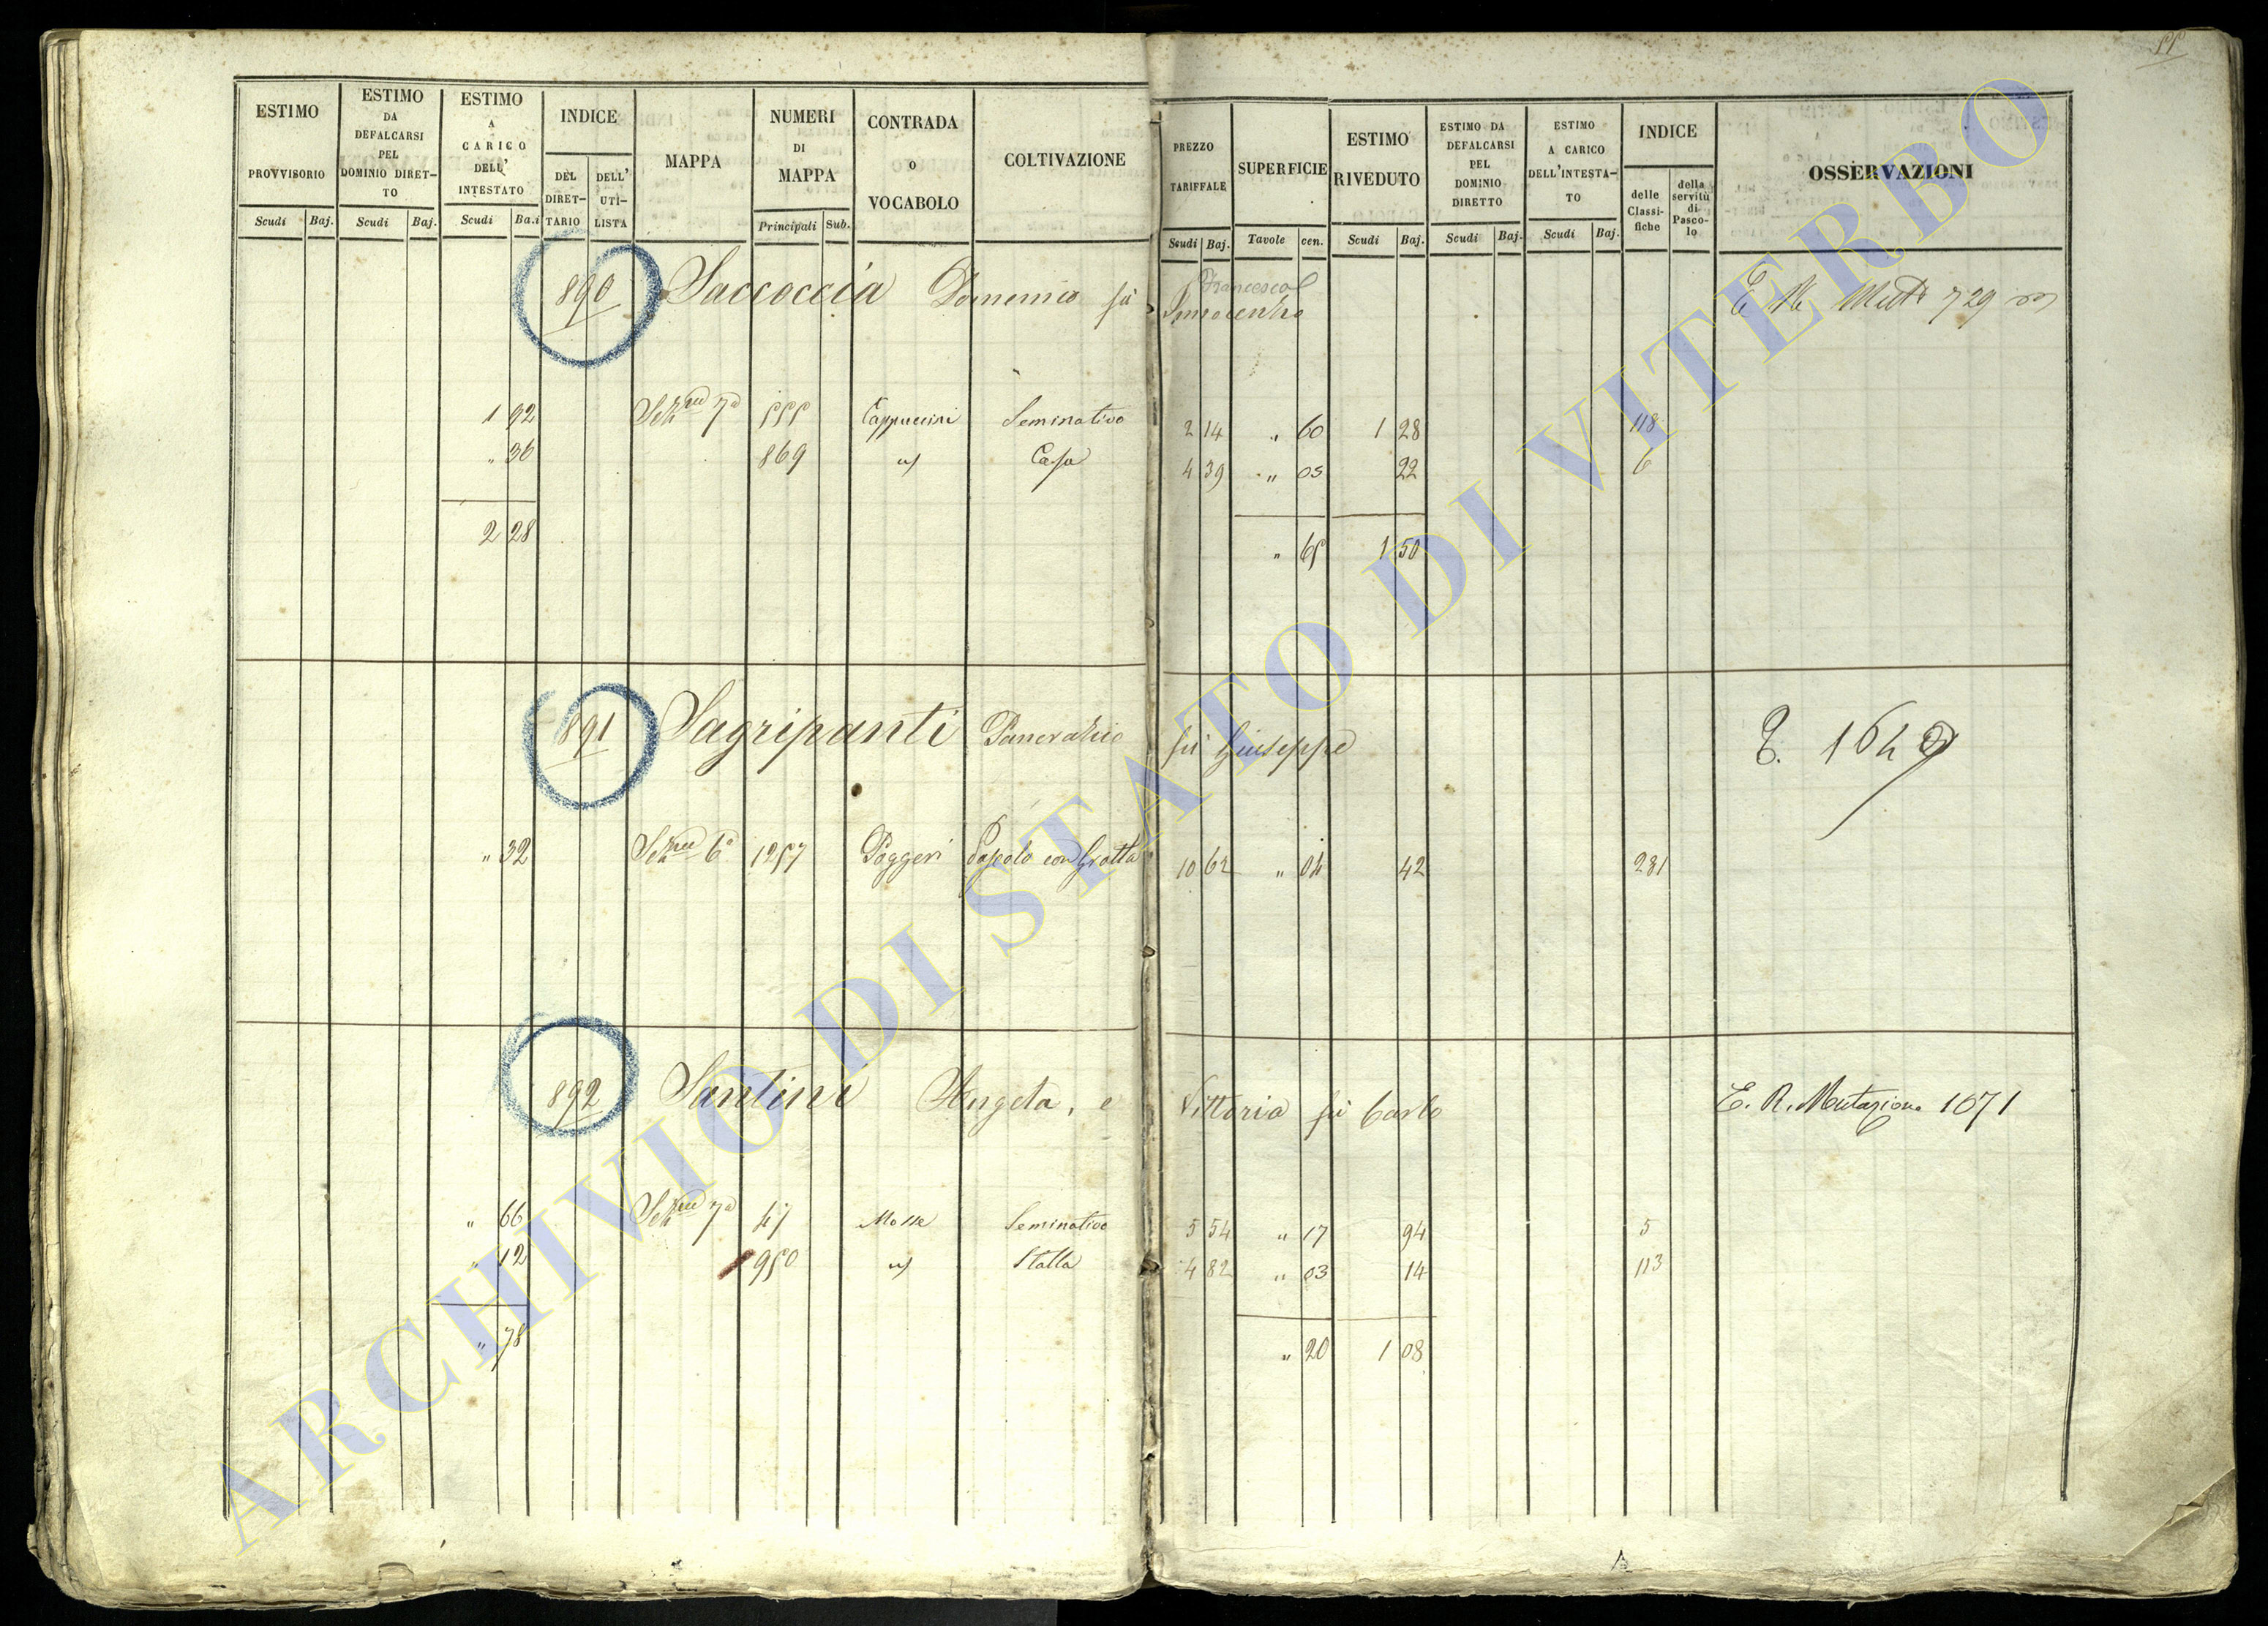 55
ESTIMO PROVVISORIO
ESTIMO DA DEFALCARSI PEL DOMINIO DIRET-TO
ESTIMO A CARICO DELL' INTESTATO
INDICE
DEL DIRET-TARIO
DELL' UTI-LISTA
MAPPA
NUMERI DI MAPPA
CONTRADA O VOCABOLO
COLTIVAZIONE
PREZZO TARIFFALE
SUPERFICIE
ESTIMO RIVEDUTO
ESTIMO DA DEFALCARSI PEL DOMINIO DIRETTO
ESTIMO A CARICO DELL'INTESTA-TO
INDICE
delle Classi-fiche
della servitù di Pasco-lo
OSSERVAZIONI
Scudi Baj. Scudi Baj. Scudi Ba.i Principali Sub. Scudi Baj. Tavole cen. Scudi Baj. Scudi Baj. Scudi Baj.
890 Saccoccia Domenico fù Francesco
Innocenzo
1 92 Sezne 7a 555 Cappuccini Seminativo 2 14 " 60 1 28 118
" 36 869 Casa 4 39 " 05 22 6
2 28 " 65 1 50
891 Sagripanti Pancrazio fù Giuseppe
" 32 Sezne 6a 1257 Poggeri Pascolo con Grotta 10 62 " 04 42 231
892 Santini Angela, e Vittoria fù Carlo E. R. Mutazione 1071
" 66 Sezne 7a 47 Mosse Seminativo 5 54 " 17 94 5
" 12 950 Stalla 4 82 " 03 14 113
" 78 " 20 1 08
ARCHIVIO DI STATO DI VITERBO